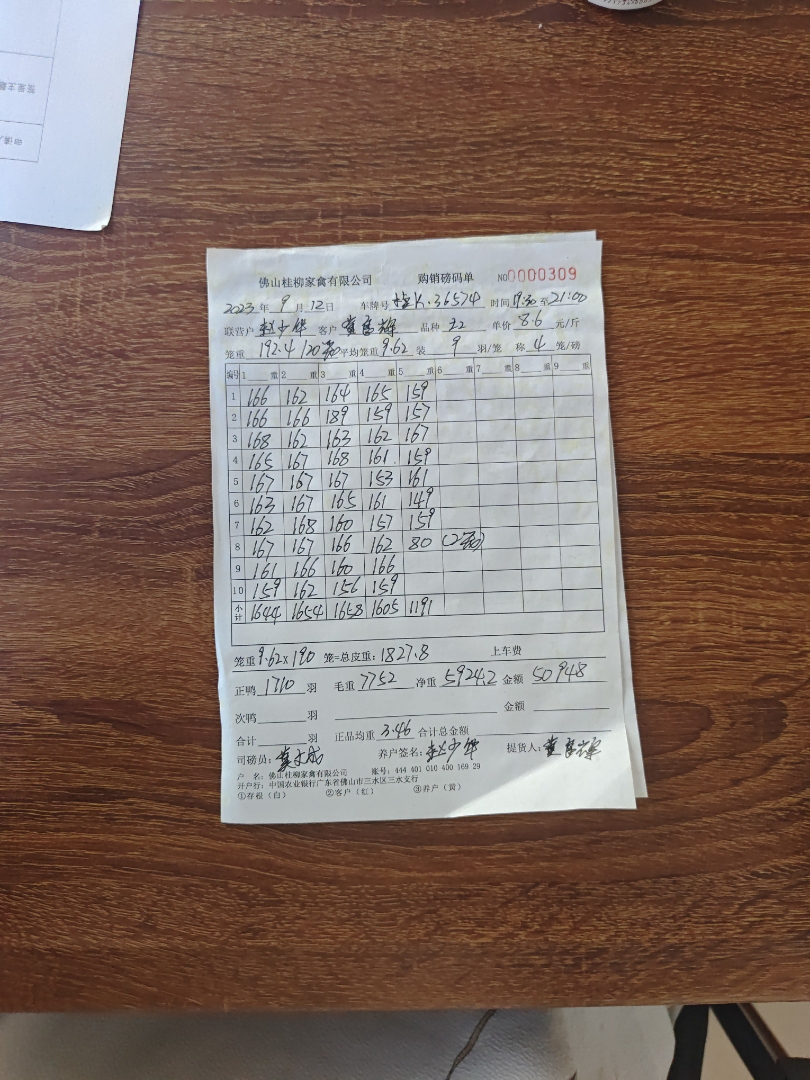 佛山桂柳家禽有限公司 购销磅码单 NO0000309
2023年 9月 12日 车牌号 桂K·36574 时间 19:30至21:00
联营户 赵少华 客户 黄 辉 品种 土2 单价 8.6 元/斤
笼重 192.4 120 平均笼重 9.62 装 9 羽/笼 称 4 笼/磅
编号 1 重 2 重 3 重 4 重 5 重 6 重 7 重 8 重 9 重
1 166 162 164 165 159
2 166 166 189 159 157
3 168 162 163 162 167
4 165 167 168 161 159
5 167 167 167 153 161
6 163 167 165 161 149
7 162 168 160 157 159
8 167 167 166 162 80 (2笼)
9 161 166 160 166
10 159 162 156 159
小计 1644 1654 1658 1605 1191
笼重 9.62×190 笼=总皮重: 1827.8 上车费
正鸭 1710 羽 毛重 7752 净重 5924.2 金额 50948
次鸭 羽 金额
合计 羽 正品均重 3.46 合计总金额
司磅员: 养户签名: 赵少华 提货人: 黄 辉
户 名: 佛山桂柳家禽有限公司 账号: 444 401 010 400 169 29
开户行: 中国农业银行广东省佛山市三水区三水支行
①存根(白) ②客户(红) ③养户(黄)